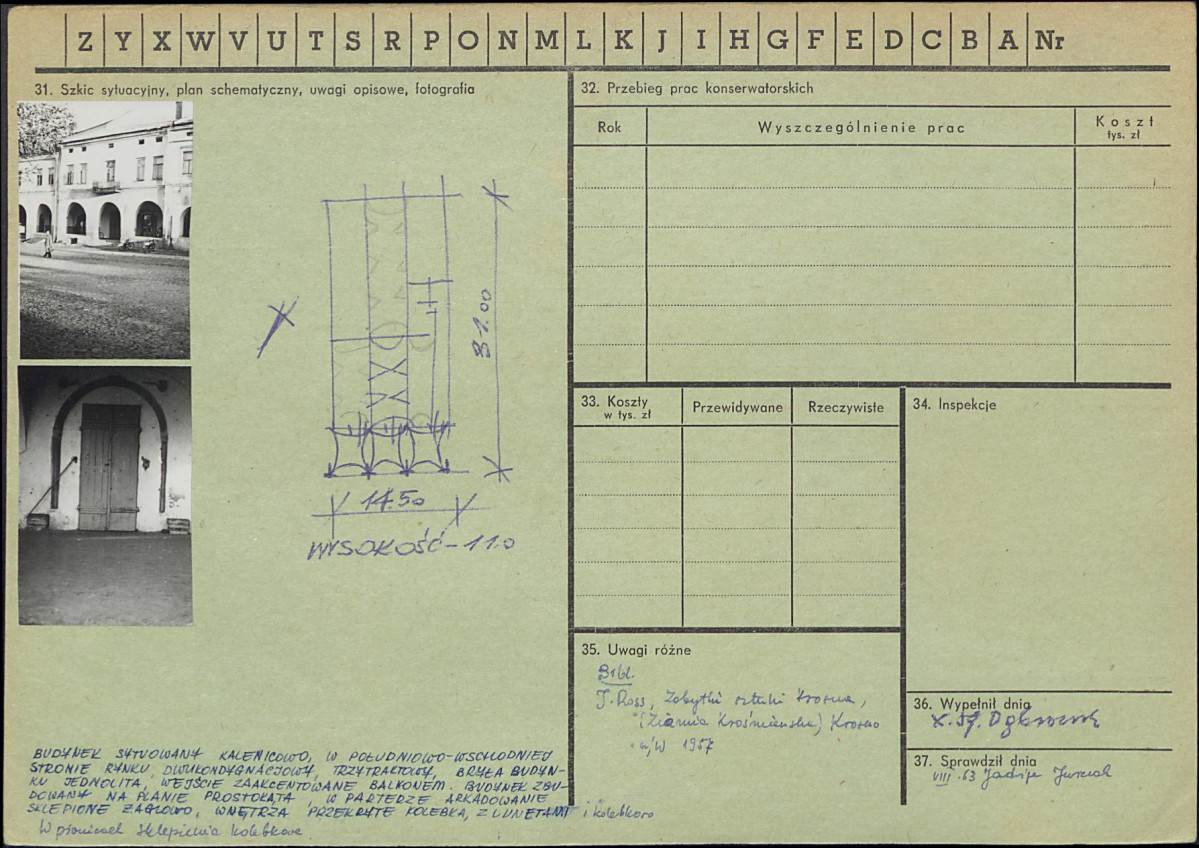 Z Y X W V U T S R P O N M L K J I H G F E D C B A Nr
31. Szkic sytuacyjny, plan schematyczny, uwagi opisowe, fotografia
31.00
14.50
WYSOKOŚĆ - 11.0
BUDYNEK SYTUOWANY KALENICOWO, W POŁUDNIOWO-WSCHODNIEJ
STRONIE RYNKU, DWUKONDYGNACJOWY, TRZYTRAKTOWY, BRYŁA BUDYN-
KU JEDNOLITA, WEJŚCIE ZAAKCENTOWANE BALKONEM. BUDYNEK ZBU-
DOWANY NA PLANIE PROSTOKĄTA, W PARTERZE ARKADOWANIE
SKLEPIONE ŻAGLOWO, WNĘTRZA PRZEKRYTE KOLEBKĄ, Z LUNETAMI i kolebkowo
W piwnicach sklepienia kolebkowe
32. Przebieg prac konserwatorskich
Rok Wyszczególnienie prac Koszt
tys. zł
33. Koszty
w tys. zł
Przewidywane Rzeczywiste
34. Inspekcje
35. Uwagi różne
Bibl.
J. Ross, Zabytki sztuki Krosna,
(Ziemia Krośnieńska) Krosno
1957
36. Wypełnił dnia
37. Sprawdził dnia
VIII.63